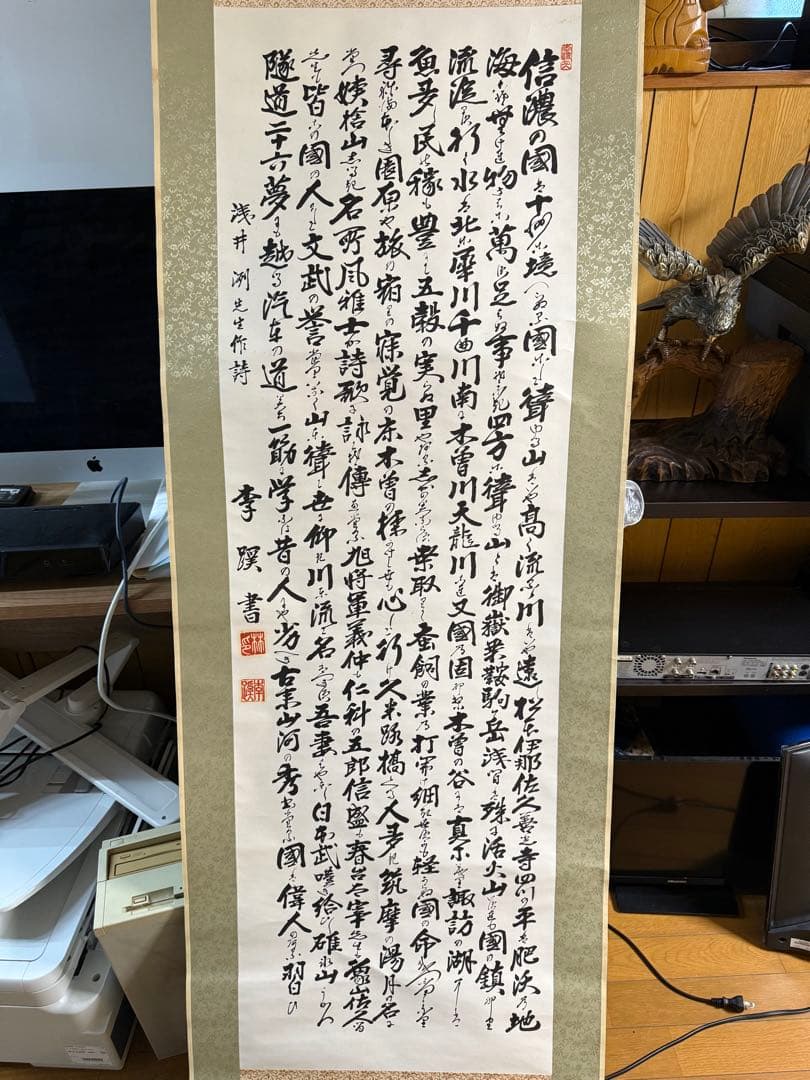 信濃の國は十州に境つらぬる國にして聳ゆる山はいや高く流るる川はいや遠し松本伊那佐久善光寺四つの平は肥沃の地
海こそ無けれ物さわに萬づ足らぬ事ぞなき四方に聳ゆる山々は御嶽乗鞍駒岳浅間は殊に活火山いづれも國の鎮めなり
流淀まず行く水は北に犀川千曲川南に木曽川天龍川これ又國の固めなり木曽の谷には真木茂り諏訪の湖には
魚多し民の稼も豊にて五穀の実らぬ里やあるしかのみならず桑取りて蚕飼の業の打開け細きよすがも軽からぬ國の命をつなぐなり
尋ねまほしき園原や旅の宿りの寐覚の床木曽の桟かけし世も心して行け久米路橋くる人多き筑摩の湯月の名に
たつ姨捨山しるき名所と風雅士が詩歌に詠てぞ傳へたる旭将軍義仲も仁科の五郎信盛も春台太宰先生も象山佐久間
先生も皆此の國の人にして文武の誉たぐひなく山と聳えて世に仰ぎ川と流れて名はつきず吾妻はやとし日本武嘆き給ひし碓氷山うがつ
隧道二十六夢にも越ゆる汽車の道みち一筋に学びなば昔の人にや劣るべき古来山河の秀でたる國は偉人のある習ひ
浅井洌先生作詩
李蹊書